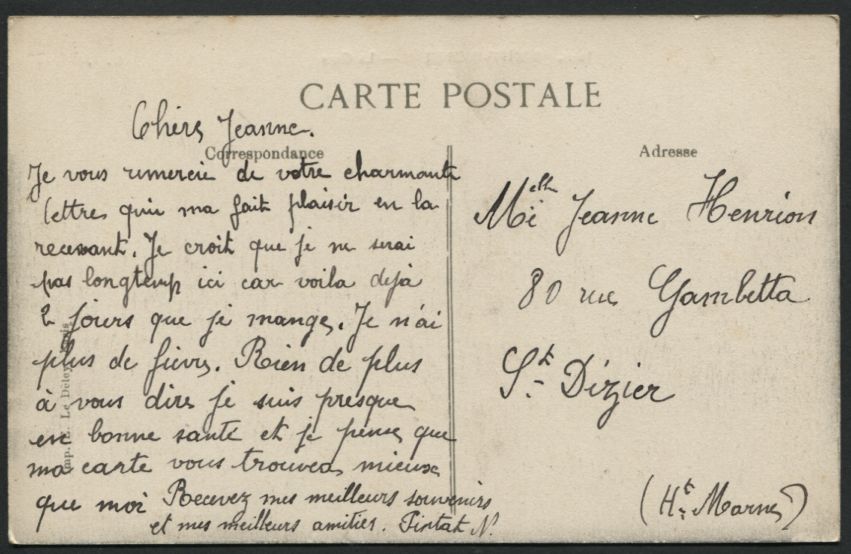 CARTE POSTALE
Correspondance
Chère Jeanne.
Je vous remercie de votre charmante
lettre qui ma fait plaisir en la
recevant. Je croit que je ne serai
pas longtemp ici car voila dejà
2 jours que je mange. Je n'ai
plus de fievre. Rien de plus
à vous dire je suis presque
en bonne sante et je pense que
ma carte vous trouvera mieux
que moi Recevez mes meilleurs souvenirs
et mes meilleurs amitier. Pintat N.
Adresse
Melle Jeanne Henrion
80 rue Gambetta
St Dizier
(Hte Marne)
Imp. E. Le Deley, Paris